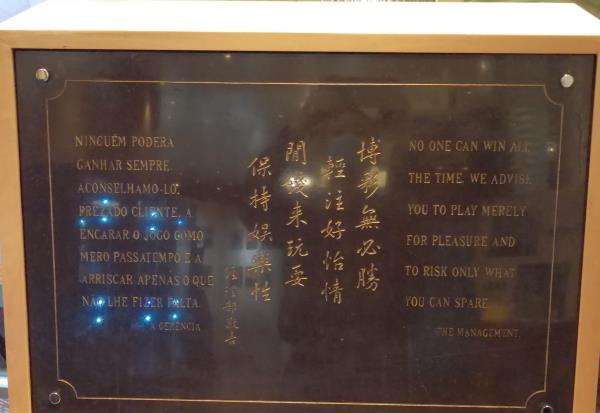 NINGUÉM PODERA
GANHAR SEMPRE.
ACONSELHAMO-LO,
PREZADO CLIENTE, A
ENCARAR O JOGO COMO
MERO PASSATEMPO E A
ARRISCAR APENAS O QUE
NÃO LHE FIZER FALTA.
A GERÊNCIA
博彩無必勝
輕注好怡情
閒錢来玩耍
保持娛樂性
經理部敬告
NO ONE CAN WIN ALL
THE TIME. WE ADVISE
YOU TO PLAY MERELY
FOR PLEASURE AND
TO RISK ONLY WHAT
YOU CAN SPARE.
THE MANAGEMENT.